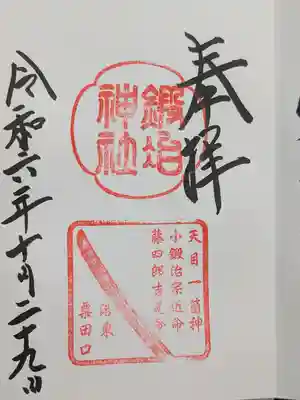 奉拝
鍛冶
神社
天目一箇神
小鍛治宗近命
藤四郎吉光命
洛東
粟田口
令和六年十月二十九日